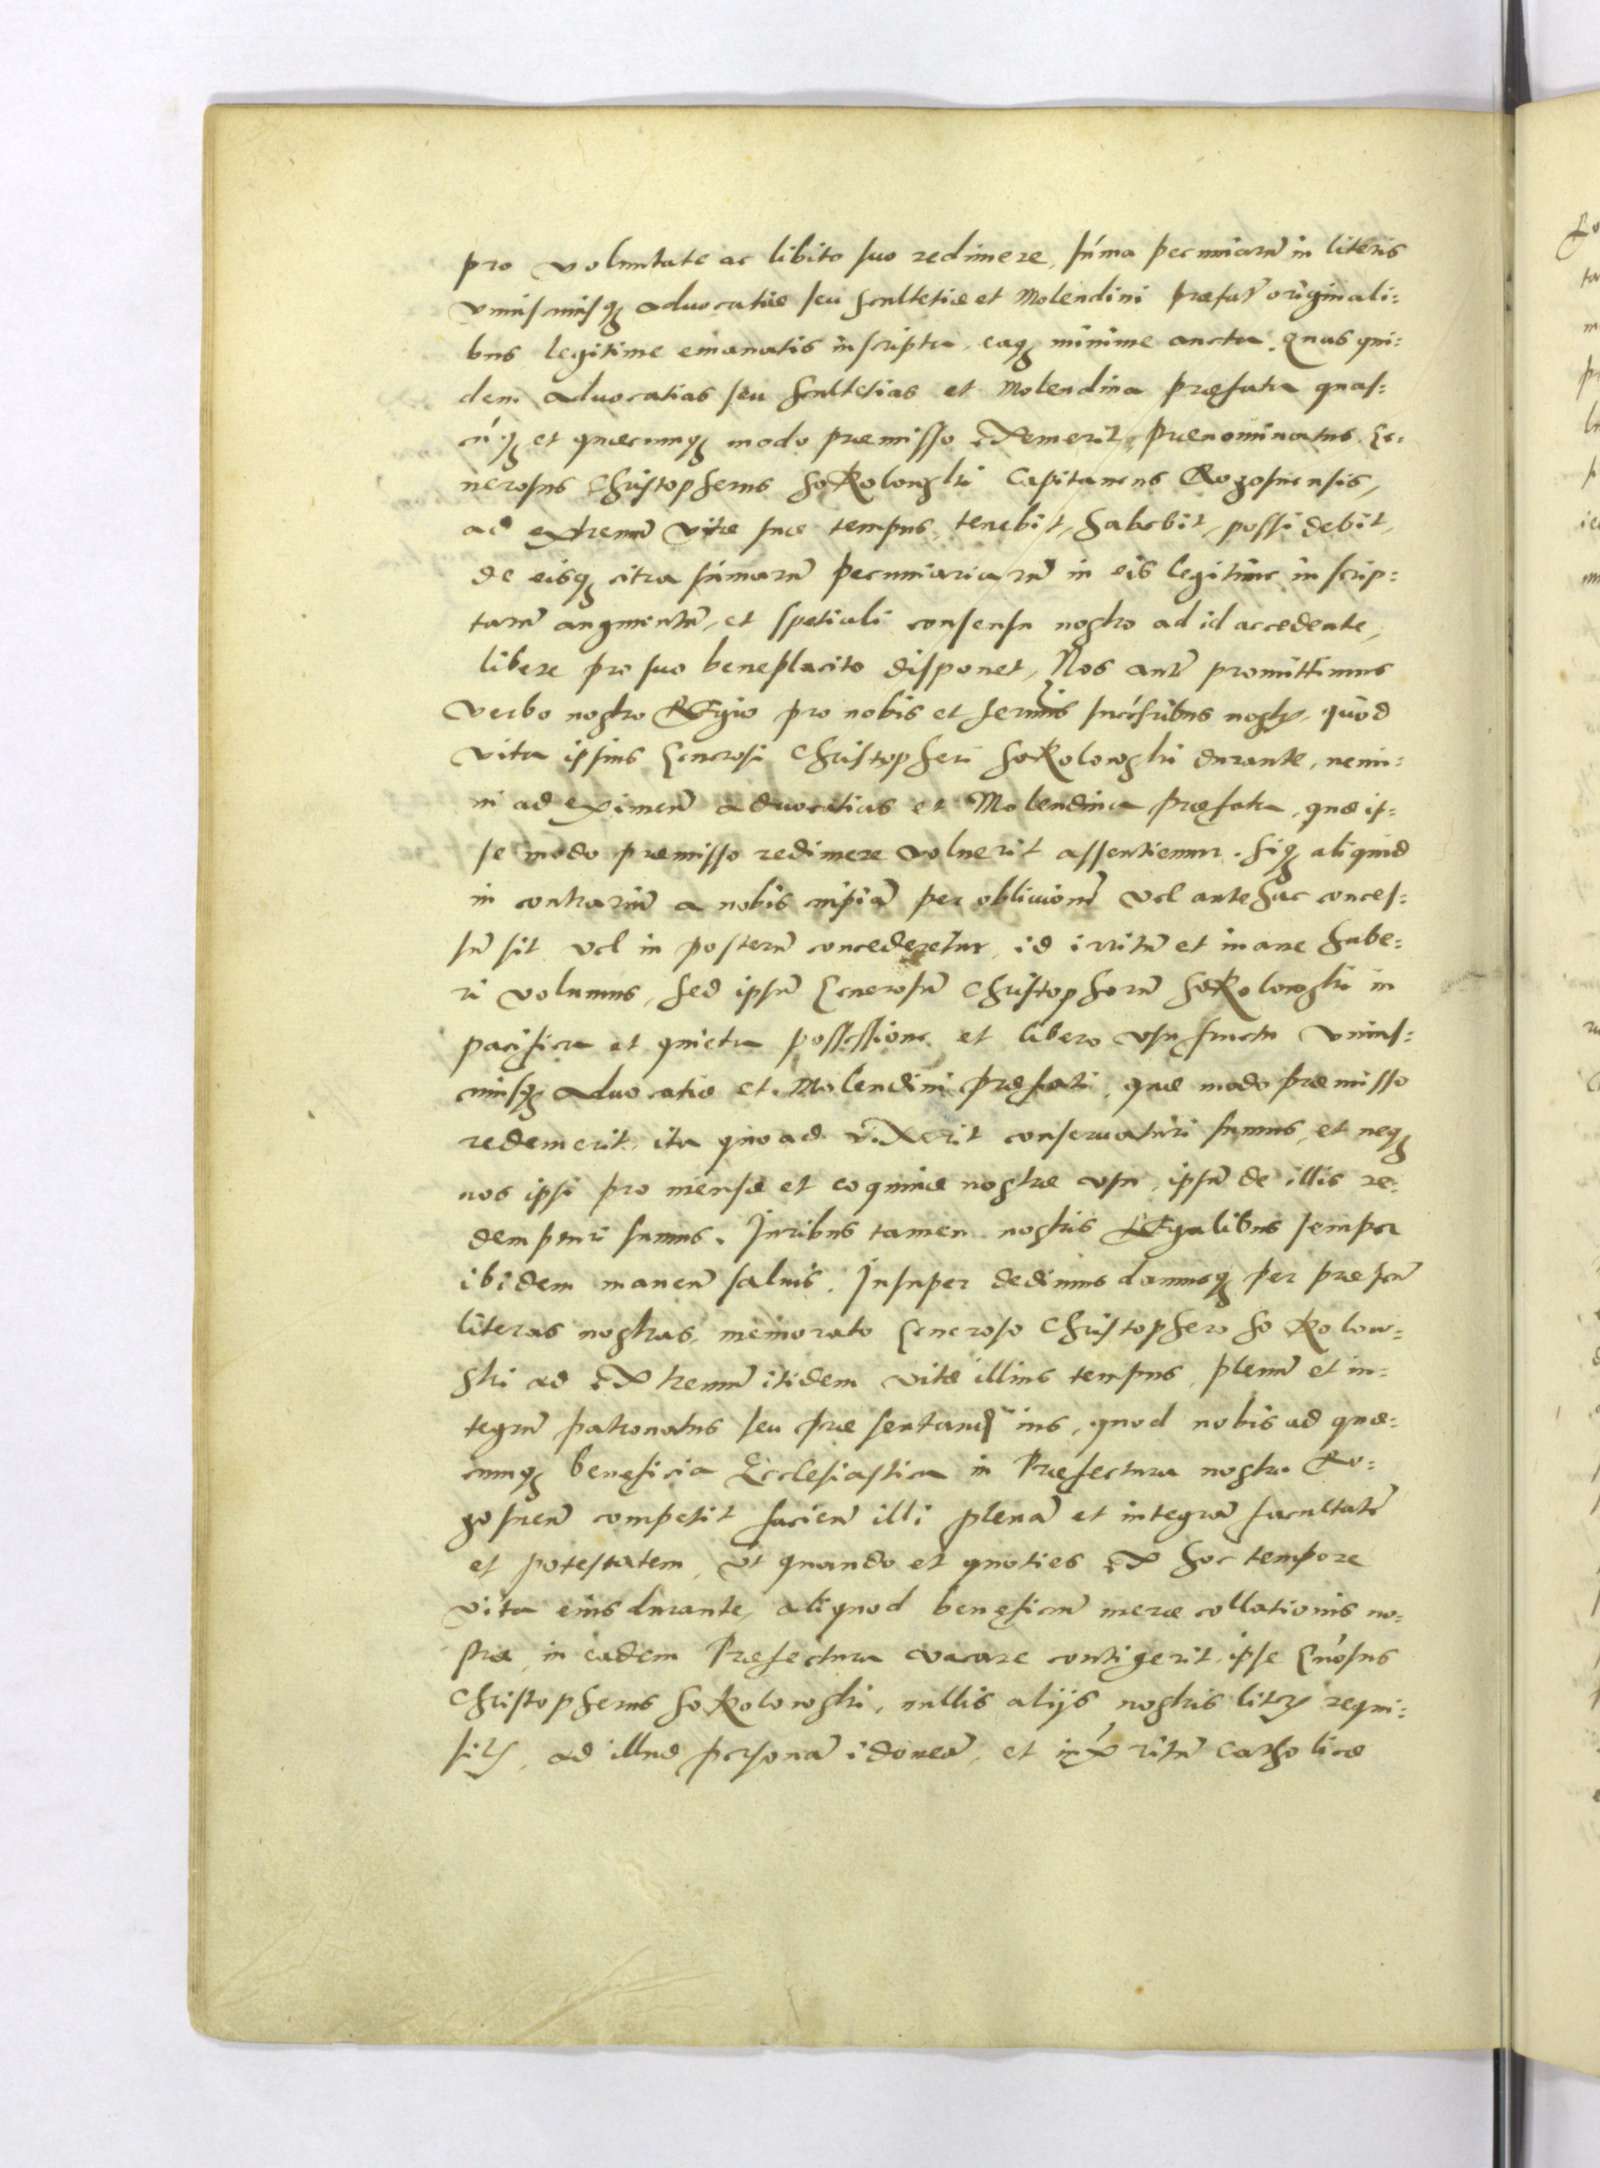 pro voluntate ac libito suo redimere, sum̃a pecuniarũ in literis
vniuscuiusq̃ aduocatiæ seu scultetiæ et Molendini præfat̃ originali-
bus legitime emanatis inscripta, eaq̃ minime aucta. Quas qui-
dem aduocatias seu scultetias et Molendina præfata quas-
cũq̃ et quæcunq̃ modo præmisso exemerit, prænominatus Ge-
nerosus Christopherus Sokolowski Capitaneus Rogosnensis,
ad extremũ vitæ suæ tempus, tenebit, habebit, possidebit,
de eisq̃ citra sum̃arũ pecuniariarũ in eis legitime inscrip-
tarũ augmentũ, et spetiali consensu nostro ad id accedente,
libere pro suo beneplacito disponet, Nos aut̃ promittimus
Verbo nostro Regio pro nobis et serm̃is succ̃soribus nostȓ, quod
vita ipsius Generosi Christopheri Sokolowski durante, nemi-
ni ad eximeñ aduocatias et Molendina præfata, quæ ip-
se modo præmisso redimere voluerit assentiemur. Siq̃ aliquid
in contrariũ a nobis cuipiã per obliuionẽ vel antehac conces-
sũ sit vel in posterũ concederetur, id irritũ et inane habe-
ri volumus, sed ipsũ Generosũ Christophorũ Sokolowski in
pacifica et quieta possessione et libero vsufructu vnius-
cuiusq̃ aduocatiæ et Molendini præfati, quæ modo præmisso
redemerit, ita quoad vixerit conseruaturi sumus, et neq̃
nos ipsi pro mensæ et coquinæ nostræ vsu, ipsũ de illis re-
dempturi sumus. Iuribus tamen nostris Regalibus semper
ibidem maneñ saluis. Insuper dedimus damusq̃ per præseñ
literas nostras, memorato Generoso Christophero Sokolow-
ski ad extremũ itidem vitæ illius tempus, plenũ et in-
tegrũ patronatus seu præsentandi ius, quod nobis ad quæ-
cunq̃ beneficia Ecclesiastica in Præfectura nostra Ro-
gosneñ competit facieñ illi plenã et integrã facultatẽ
et potestatem, vt quando et quoties ex hoc tempore
vita eius durante, aliquod beneficiũ meræ collationis no-
stræ, in eadem Præfectura vacare contigerit, ipse Gñosus
Christopherus Sokolowski, nullis alijs nostris litȓ requi-
sitȓ, ad illud personã idoneã, et iuxˊ ritũ Catholicæ